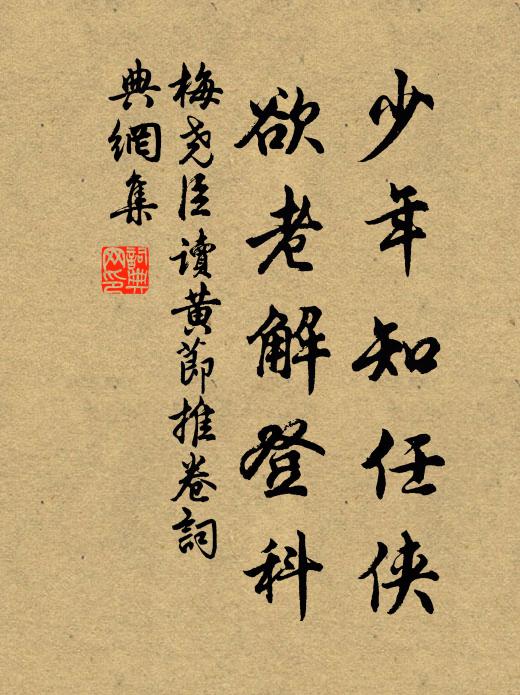 少年知任侠
欲老解登科
梅尧臣读黄莭推卷词
典網集
詞典
网印